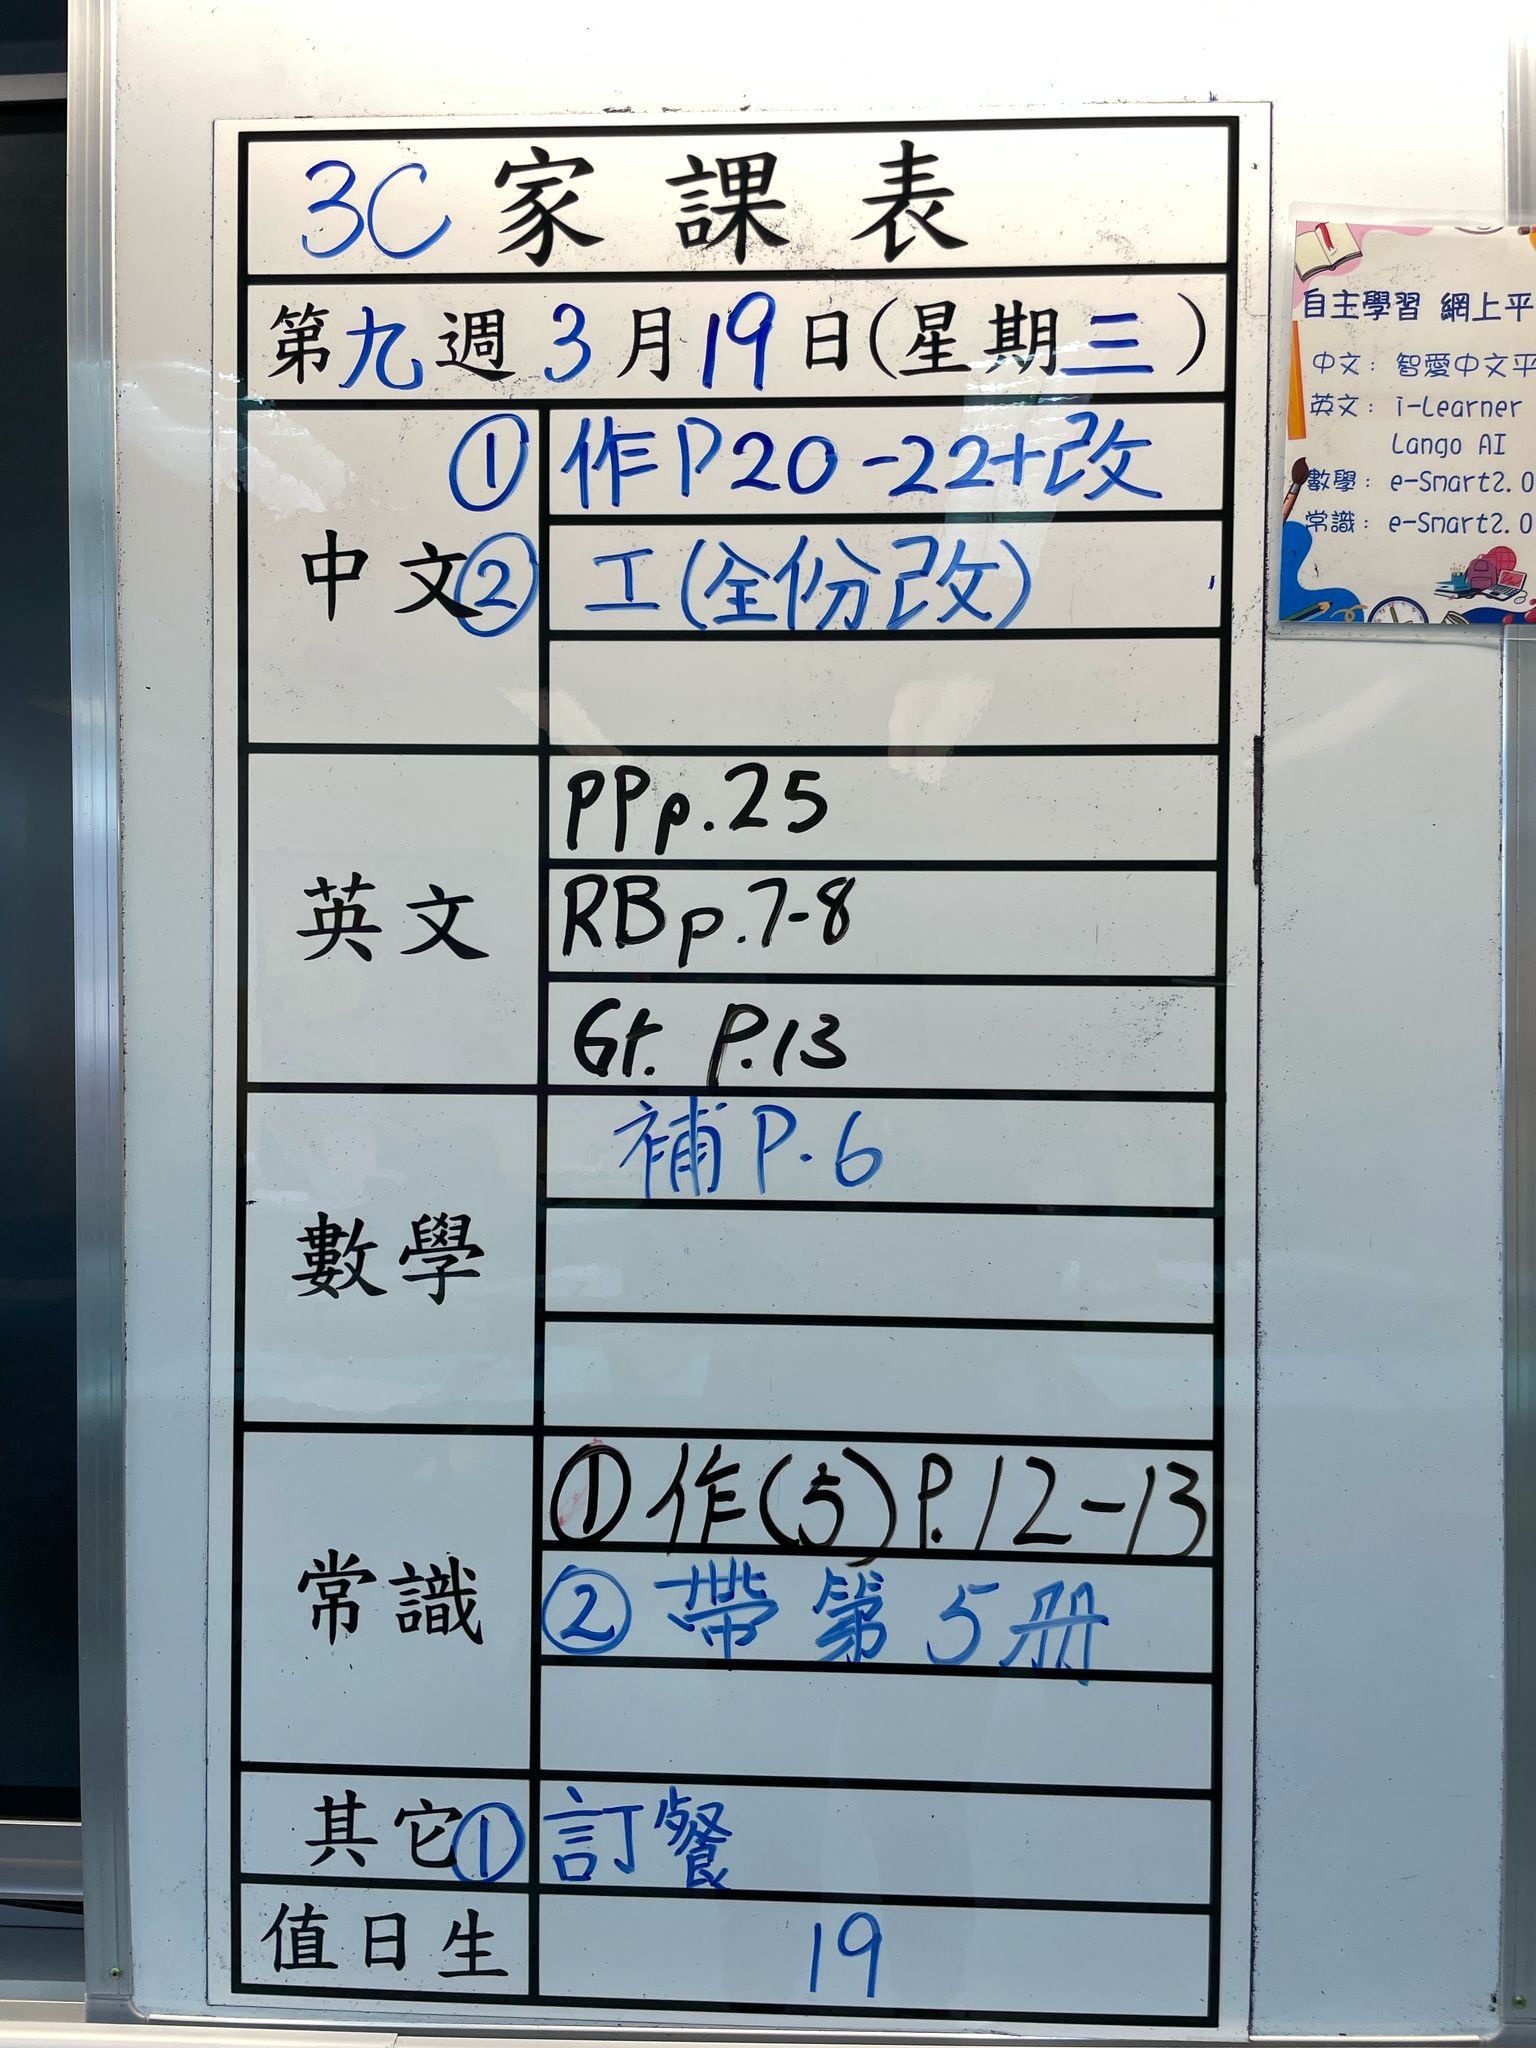 3C 家課表
第九週 3月19日(星期三)
中文
① 作P20-22+改
② 工(全份改)
英文
PP p.25
RB p.7-8
Gr. P.13
數學
補 P.6
常識
① 作(5) P.12-13
② 帶第5册
其它
① 訂餐
值日生
19
自主學習 網上平
中文: 智愛中文平
英文: i-Learner
Lango AI
數學: e-Smart2.0
常識: e-Smart2.0